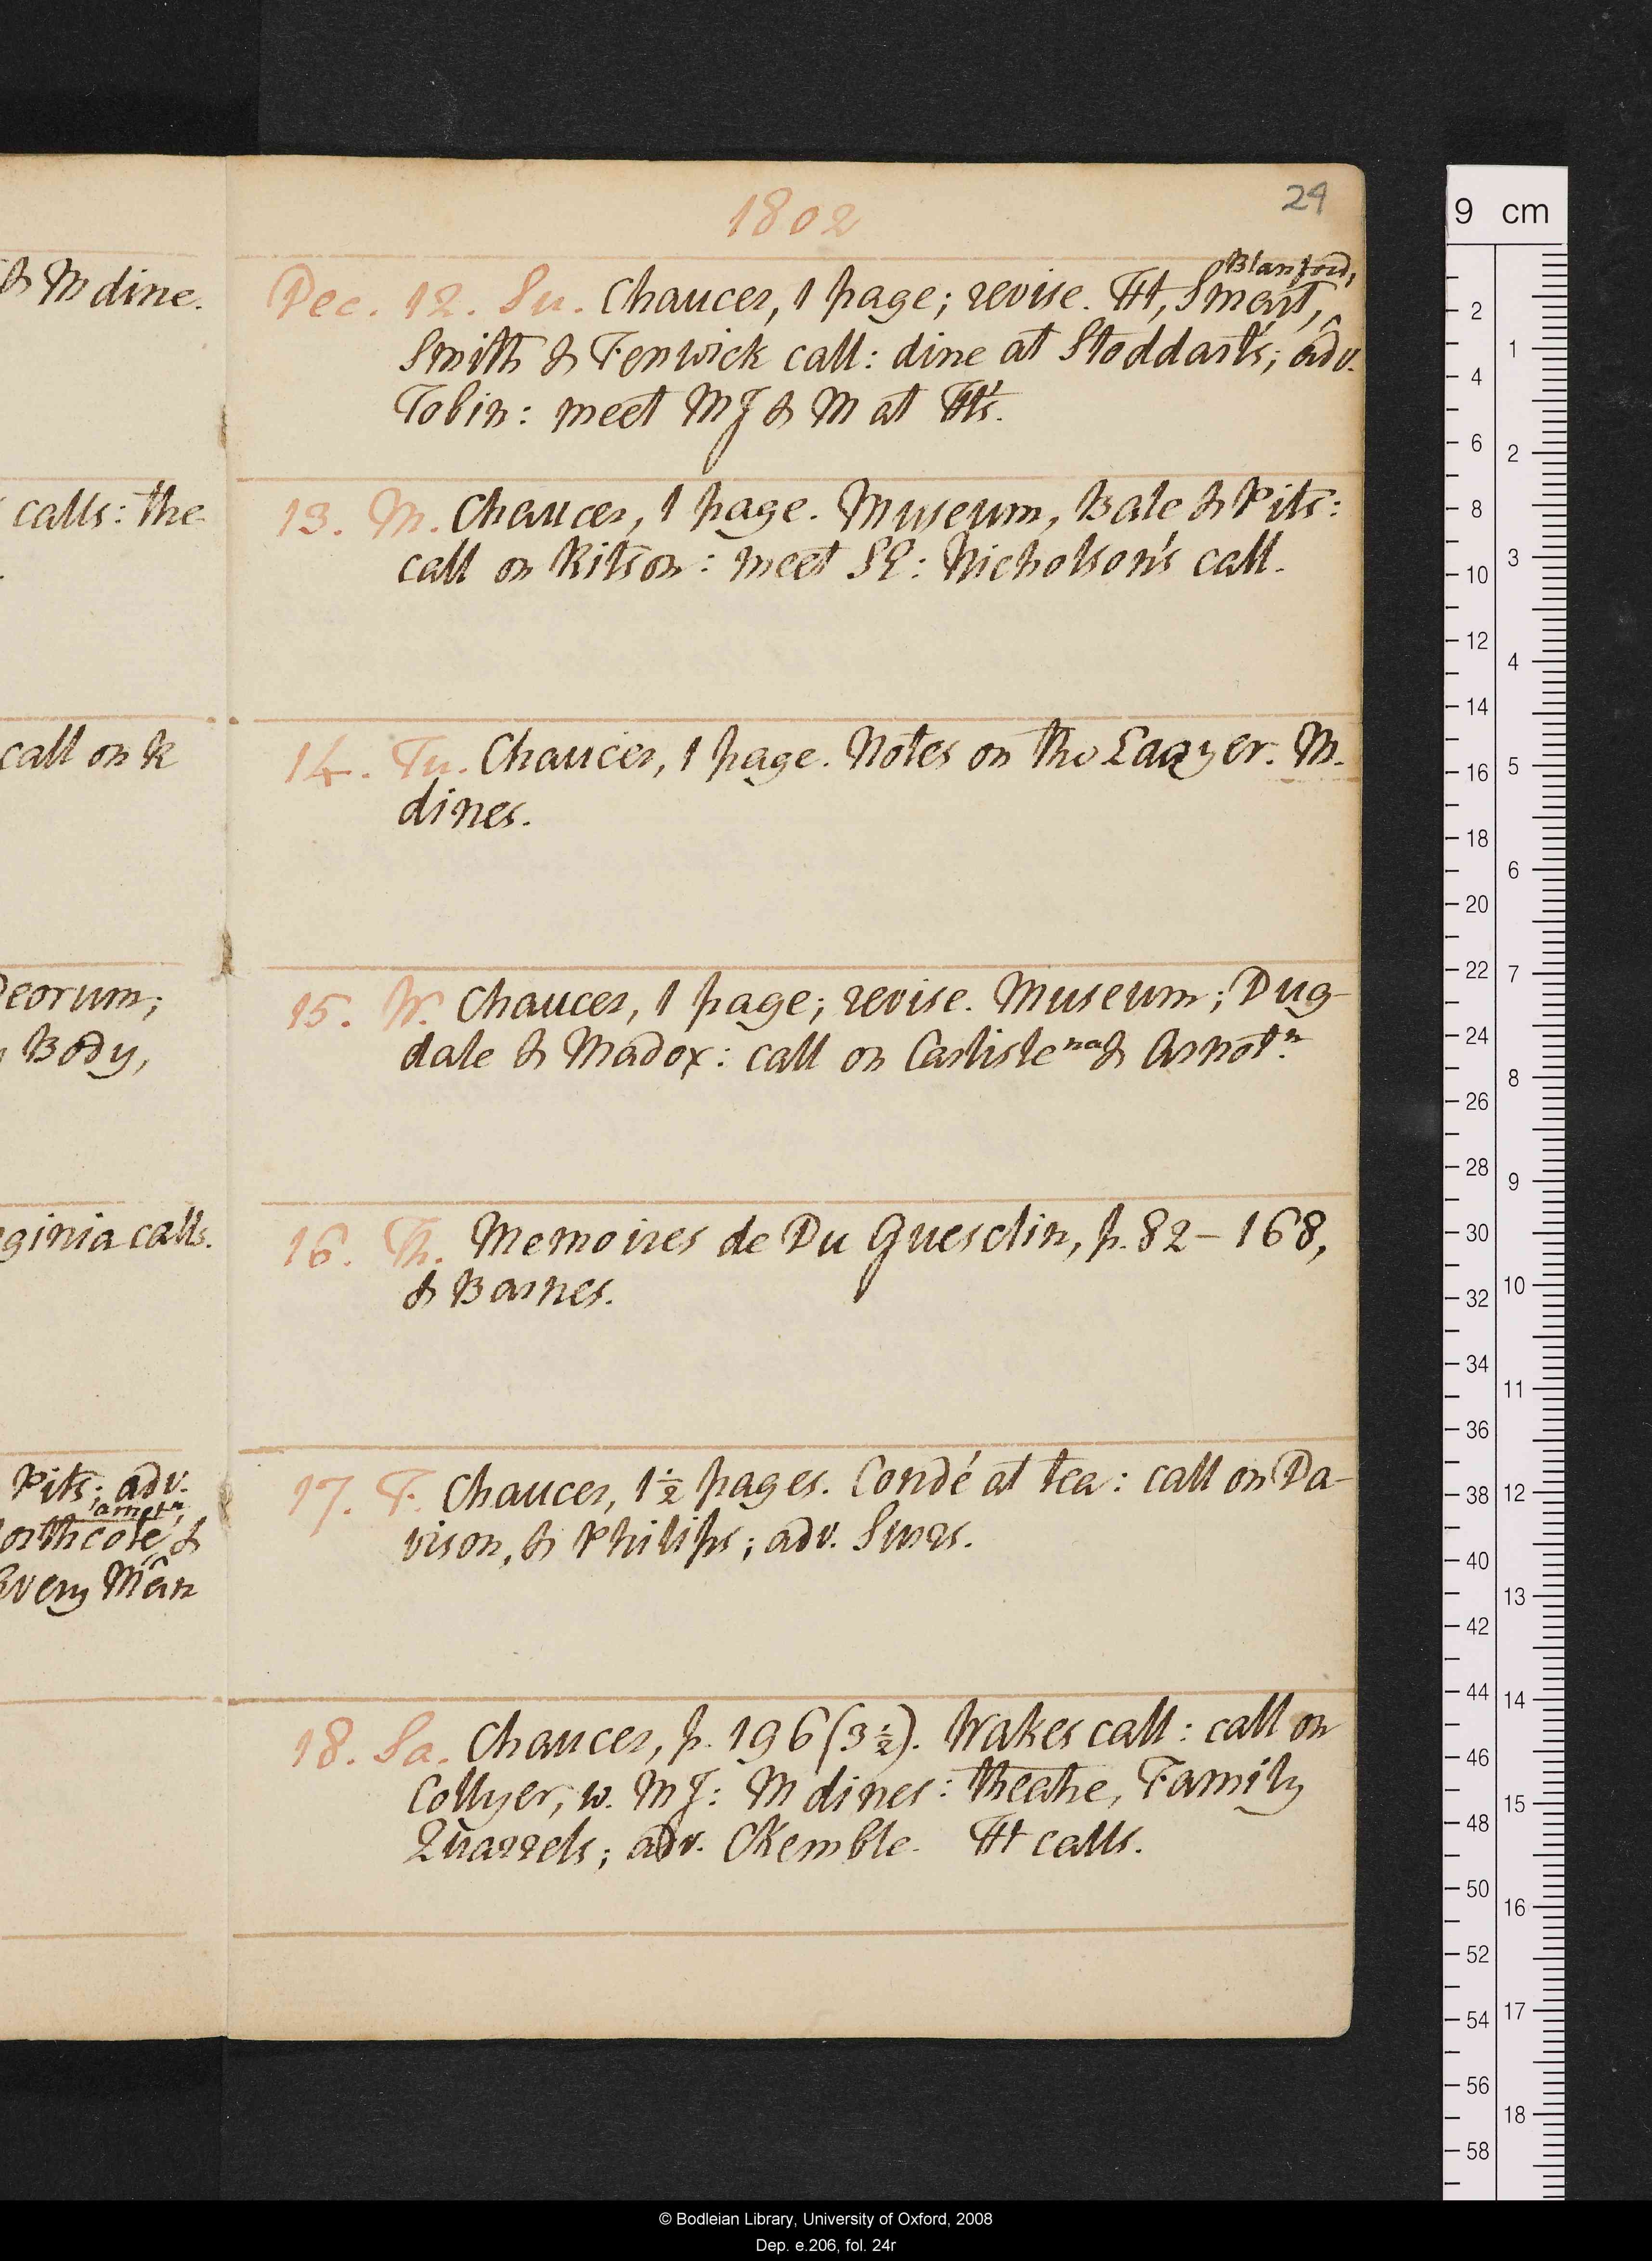 & M dine.
calls: the
call on K
Deorum;
Body,
ginia calls.
Pits; adv.
Lamet n,
orthcote, &
Every Man
1802
24
Blanford,
Dec. 12. Su. Chaucer, 1 page; revise. Ht, Smart, ^
Smith & Fenwick call: dine at Stoddart's; adv.
Tobin: meet MJ & M at Ht's.
13. M. Chaucer, 1 page. Museum, Bale & Pits:
call on Ritson: meet SE: Nicholson's call.
14. Tu. Chaucer, 1 page. Notes on the Lawyer. M.
dines.
15. W. Chaucer, 1 page; revise. Museum; Dug-
dale & Madox: call on Carlisle na & Arnot n.
16. Th. Memoires de Du Guesclin, p. 82 – 168,
& Barnes.
17. F. Chaucer, 1½ pages. Condé at tea: call on Da-
vison, & Philips; adv. Swrs.
18. Sa. Chaucer, p. 196 (3½). Wakes call: call on
Collyer, w. MJ: M dines: theatre, Family
Quarrels; adv. CKemble. Ht calls.
9 cm
2
4
6
8
10
12
14
16
18
20
22
24
26
28
30
32
34
36
38
40
42
44
46
48
50
52
54
56
58
1
2
3
4
5
6
7
8
9
10
11
12
13
14
15
16
17
18
© Bodleian Library, University of Oxford, 2008
Dep. e.206, fol. 24r